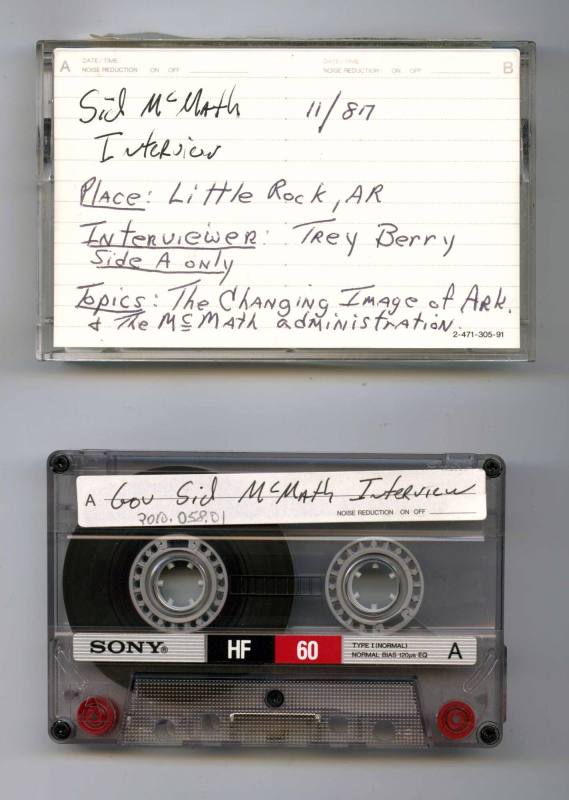 A DATE/TIME DATE/TIME B
NOISE REDUCTION ON OFF NOISE REDUCTION ON OFF
Sid McMath 11/87
Interview
Place: Little Rock, AR
Interviewer: Trey Berry
Side A only
Topics: The Changing Image of Ark.
& The McMath administration.
2-471-305-91
A Gov Sid McMath Interview
2010.058.01
NOISE REDUCTION ON OFF
SONY® HF 60 TYPE I (NORMAL)
NORMAL BIAS 120μs EQ A